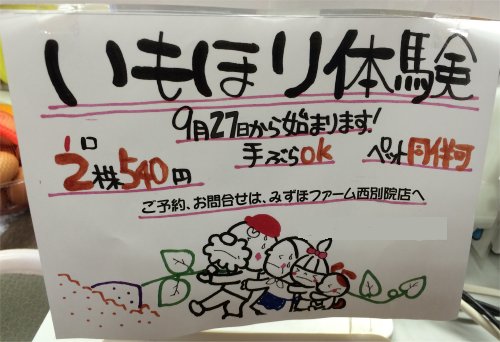 いもほり体験
9月27日から始まります!
1口
2株540円
手ぶらok
ペット同伴可
ご予約、お問合せは、みずほファーム西別院店へ